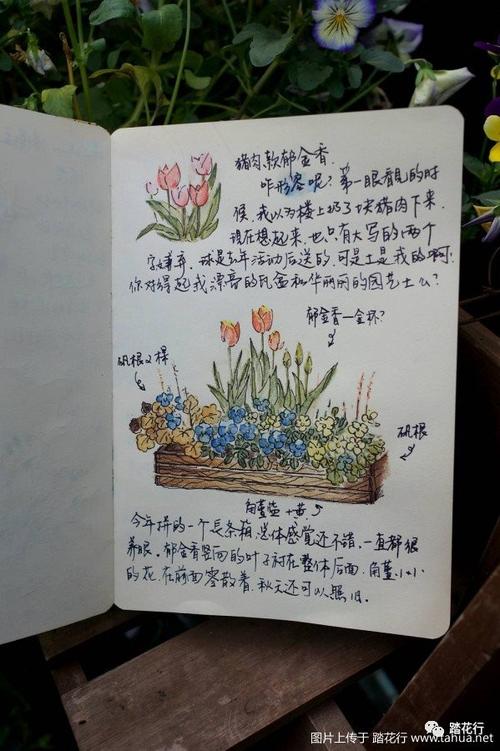 猪肉款郁金香.
咋形容呢?第一眼看见的时
候,我以为楼上扔了块猪肉下来.
现在想起来,也只有大写的两个
字嫌弃.球是去年活动后送的,可是土是我的啊!
你对得起我漂亮的瓦盆和华丽丽的园艺土么?
郁金香一金杯?
矾根2棵
矾根
角堇蓝+黄
今年拼的一个长条箱,总体感觉还不错,一直都很
养眼.郁金香竖向的叶子衬在整体后面,角堇小小
的花,在前面零散着,秋天还可以照旧.
踏花行
图片上传于 踏花行 www.tahua.net